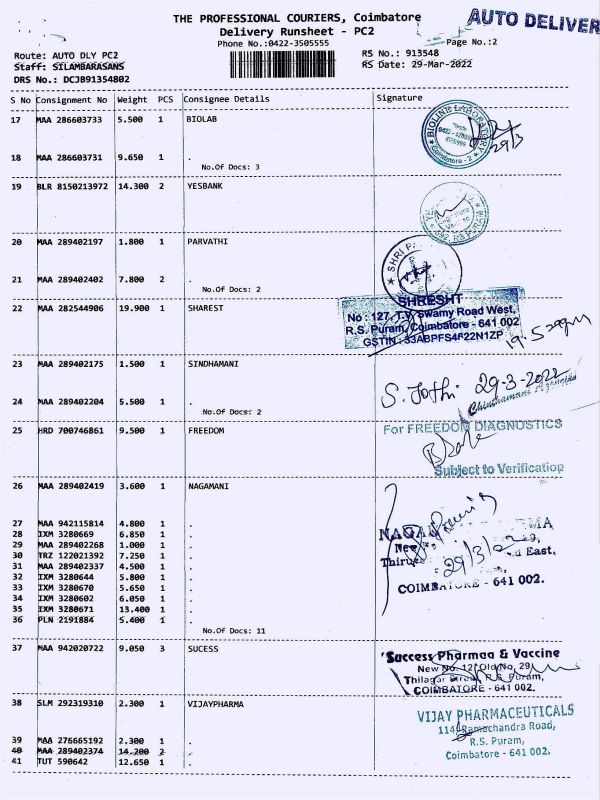 THE PROFESSIONAL COURIERS, Coimbatore
AUTO DELIVER
Delivery Runsheet - PC2
Phone No.:0422-3505555
Page No.:2
Route: AUTO DLY PC2
RS No.: 913548
Staff: SILAMBARASANS
RS Date: 29-Mar-2022
DRS No.: DCJB91354802
S No Consignment No Weight PCS Consignee Details Signature
17 MAA 286603733 5.500 1 BIOLAB
BIOLINE LABORATORY
Coimbatore - 2
29/3
18 MAA 286603731 9.650 1 .
No.Of Docs: 3
19 BLR 8150213972 14.300 2 YESBANK
20 MAA 289402197 1.800 1 PARVATHI
SHRI
21 MAA 289402402 7.800 2 .
No.Of Docs: 2
22 MAA 282544906 19.900 1 SHAREST
SHRESHT
No : 127, T.V. Swamy Road West,
R.S. Puram, Coimbatore - 641 002
GSTIN : 33ABPFS4622N1ZP
23 MAA 289402175 1.500 1 SINDHAMANI
S. Jothi 29-3-2022
24 MAA 289402204 5.500 1 .
No.Of Docs: 2
25 HRD 700746861 9.500 1 FREEDOM
For FREEDOM DIAGNOSTICS
Subject to Verification
26 MAA 289402419 3.600 1 NAGAMANI
27 MAA 942115814 4.800 1 .
28 IXM 3280669 6.850 1 .
29 MAA 289402268 1.000 1 .
30 TRZ 122021392 7.250 1 .
31 MAA 289402337 4.500 1 .
32 IXM 3280644 5.800 1 .
33 IXM 3280670 5.650 1 .
34 IXM 3280602 6.050 1 .
35 IXM 3280671 13.400 1 .
36 PLN 2191884 5.400 1 .
No.Of Docs: 11
East,
COIMBATORE - 641 002.
37 MAA 942020722 9.050 3 SUCESS
Success Pharmaa & Vaccine
New No. 12, Old No. 29,
Thilagar Street, R.S. Puram,
COIMBATORE - 641 002.
38 SLM 292319310 2.300 1 VIJAYPHARMA
VIJAY PHARMACEUTICALS
114, Ramachandra Road,
R.S. Puram,
Coimbatore - 641 002.
39 MAA 276665192 2.300 1 .
40 MAA 289402374 14.200 2 .
41 TUT 590642 12.650 1 .